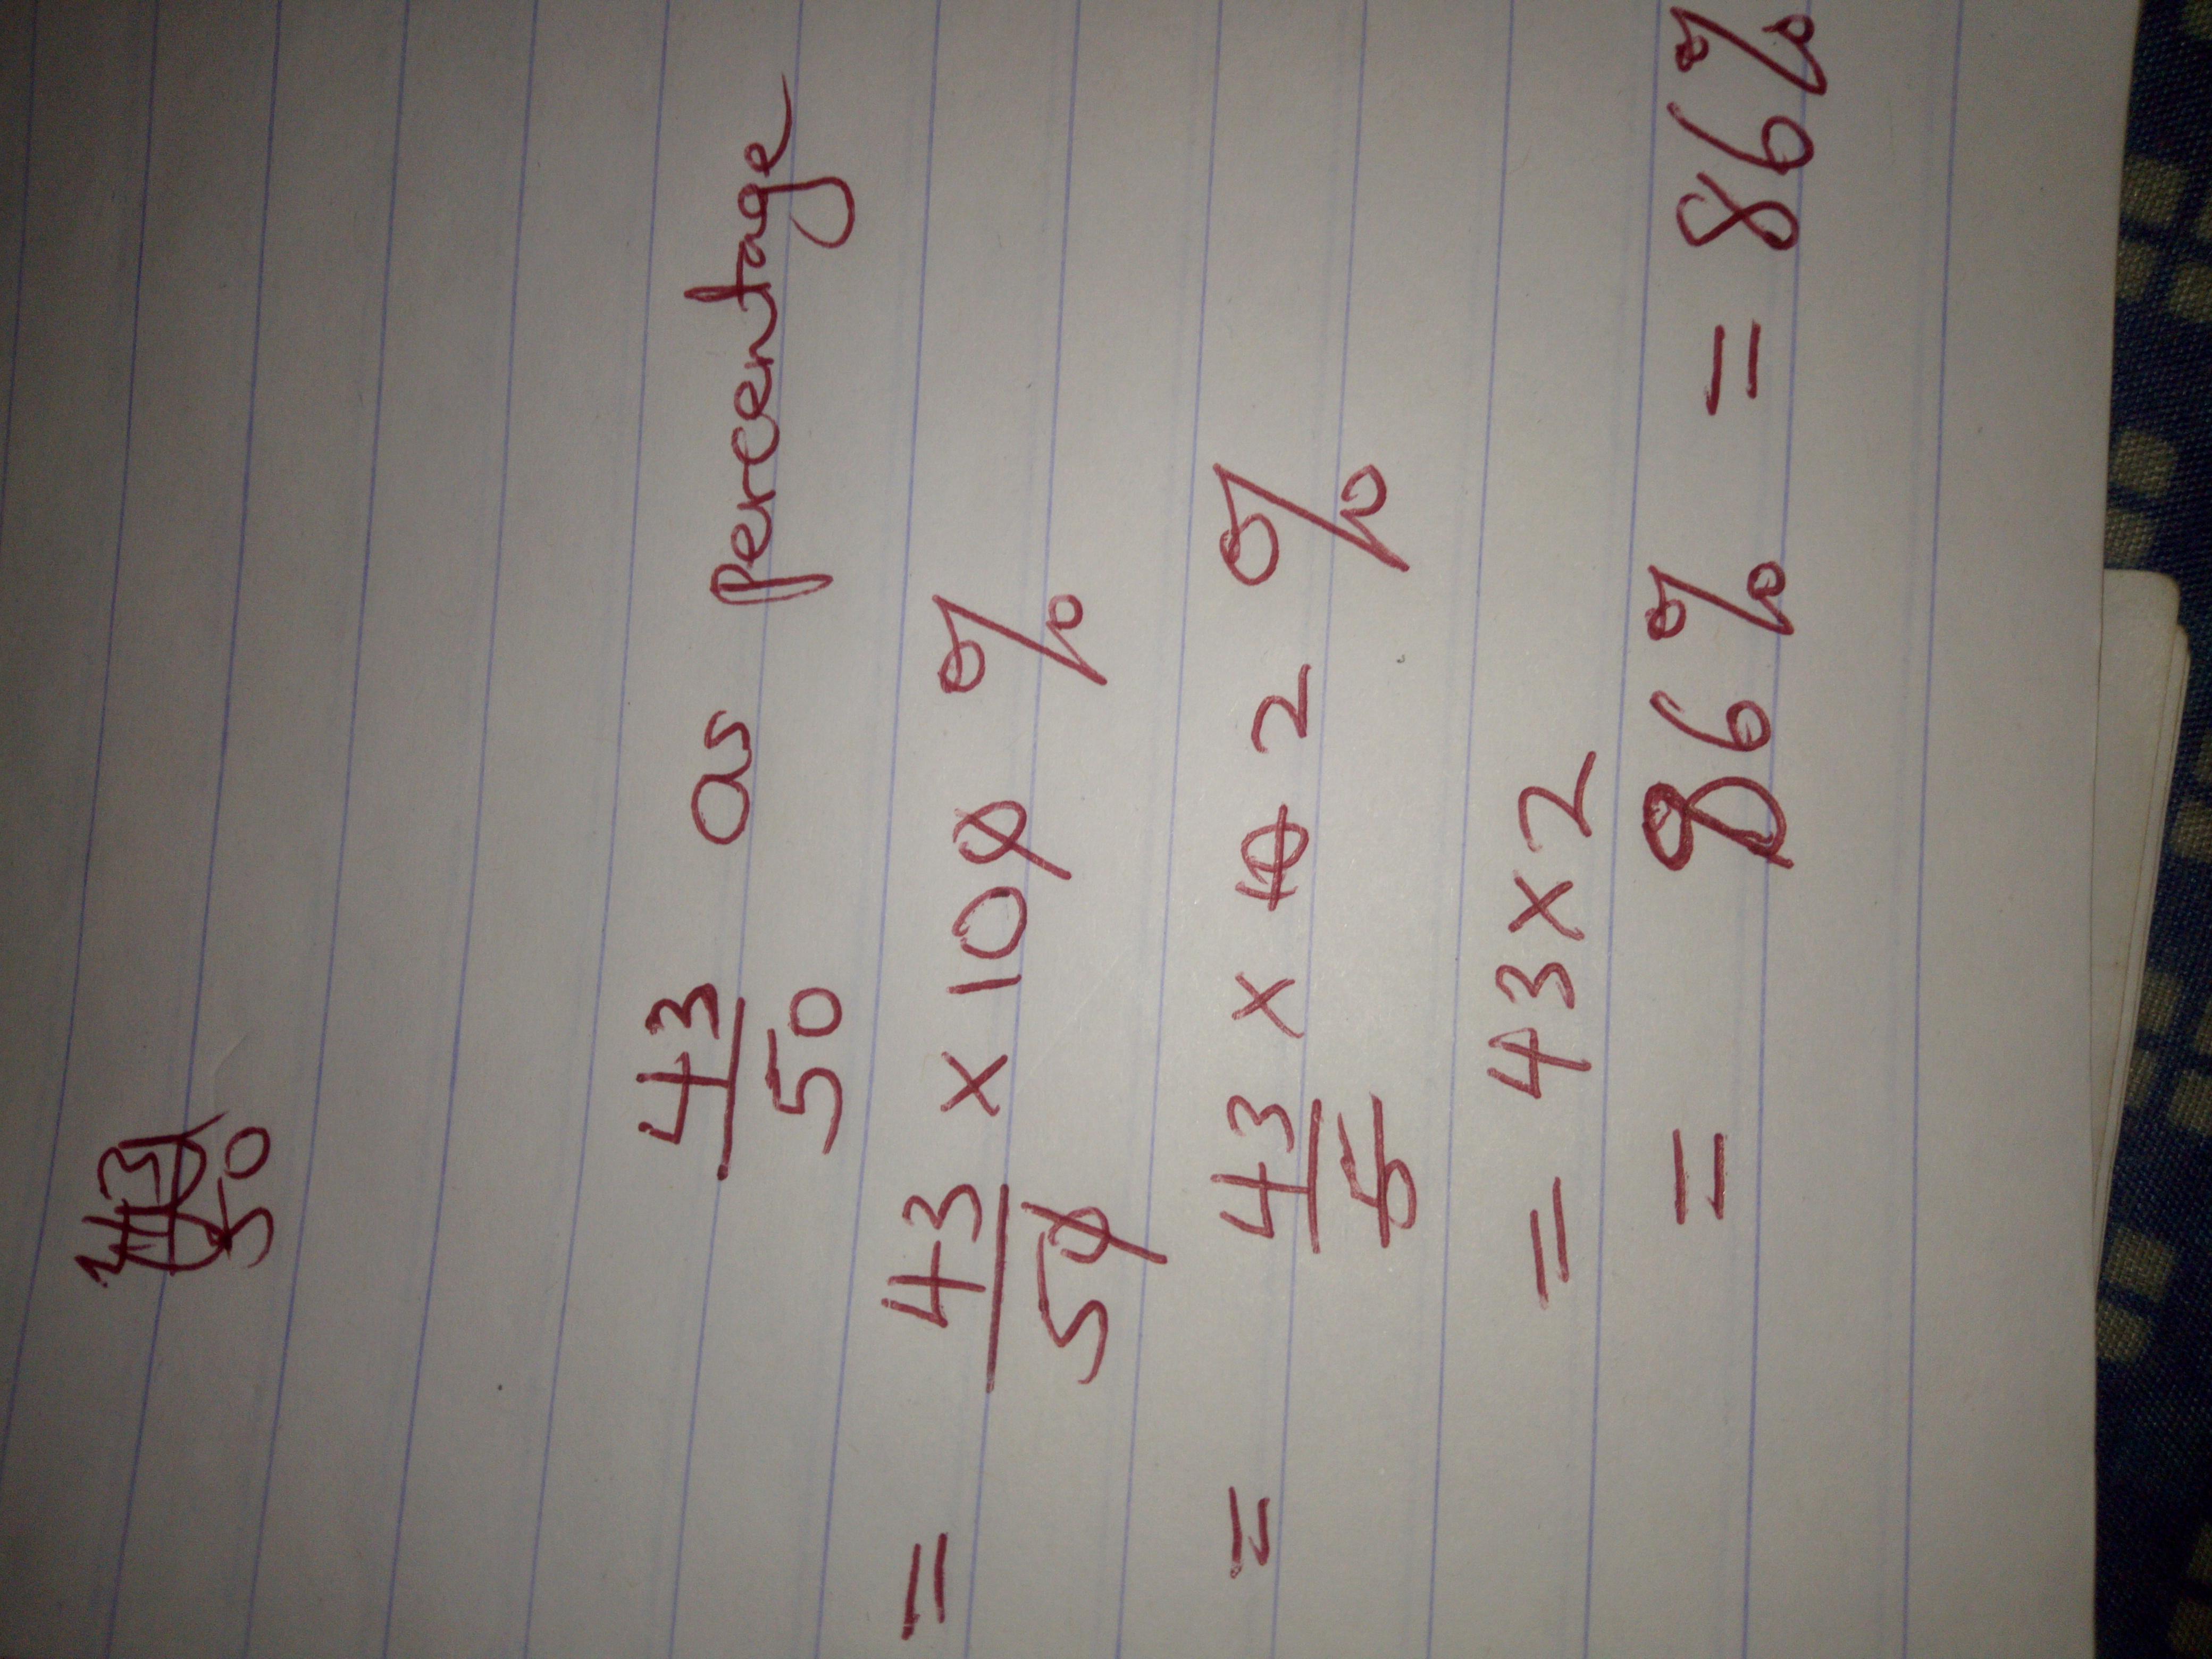 43/50 as percentage
= 43/50 × 100 %
= 43/5 × 10 2 %
= 43 × 2
= 86% = 86%